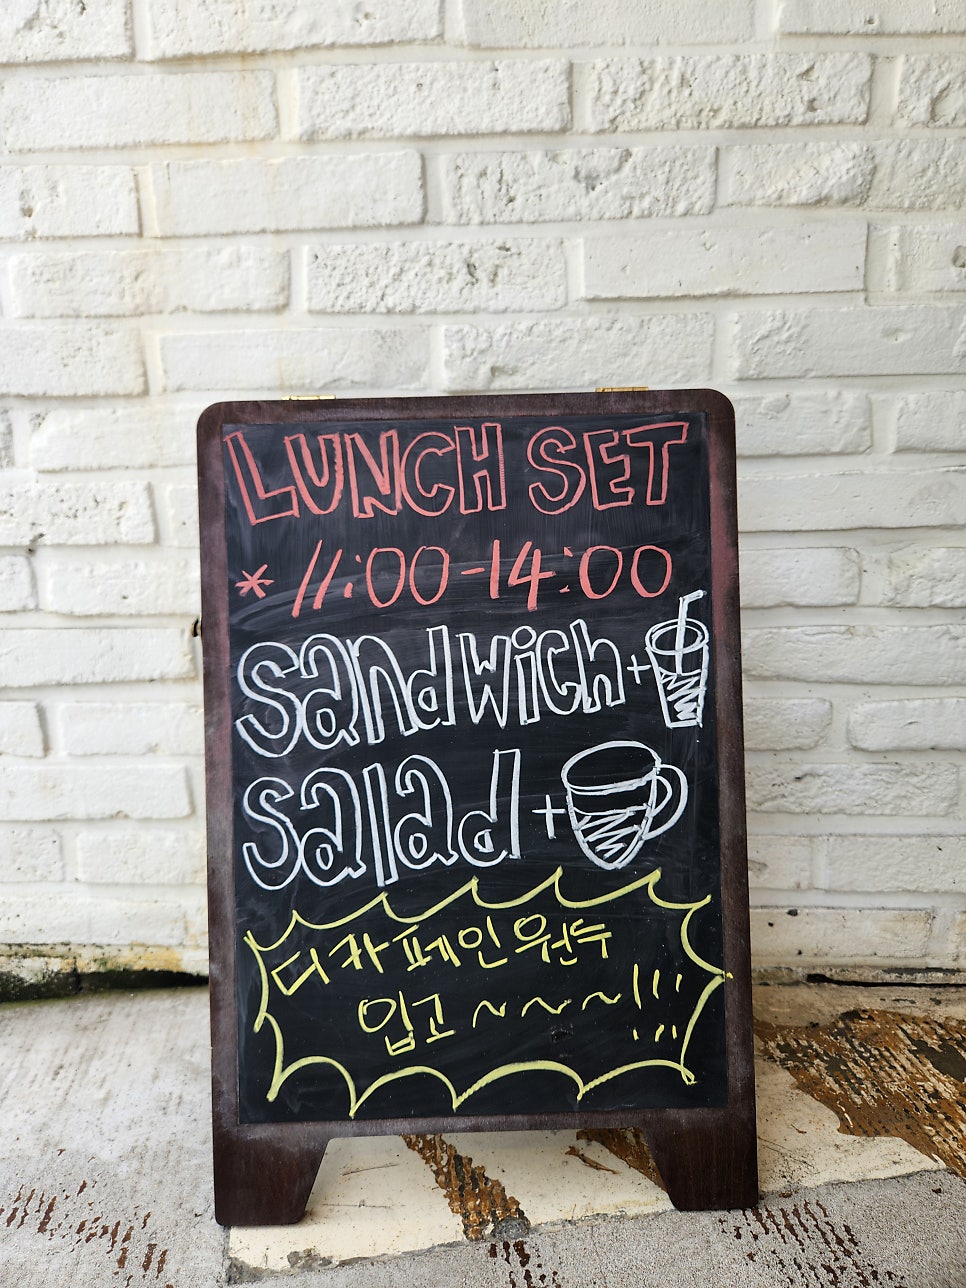 LUNCH SET
* 11:00-14:00
sandwich+
salad+
디카페인 원두
입고~~~!!!